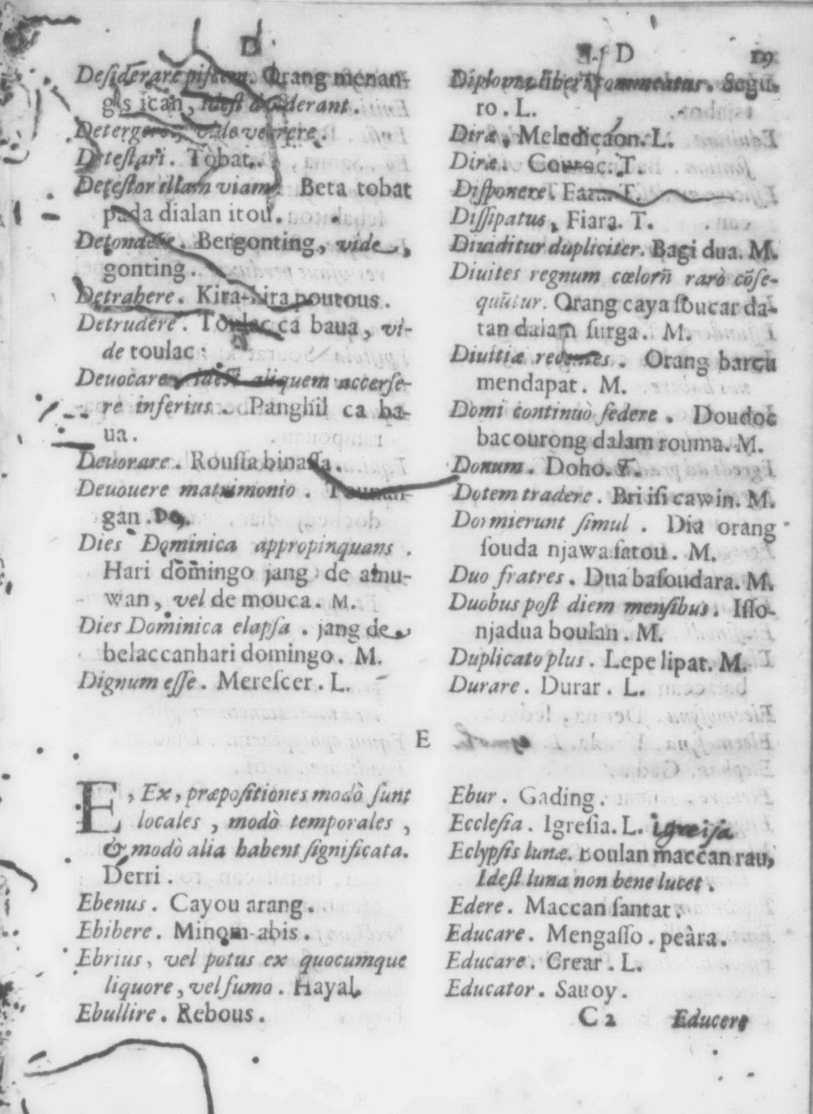 D
Desiderare piscem. Orang menan-
gis ican, idest desiderant.
Detergere, vide verrere.
Detestari. Tobat.
Detestor illam viam. Beta tobat
pada dialan itou.
Detondere. Bergonting, vide
gonting.
Detrahere. Kira-kira poutous.
Detrudere. Toulac ca baua, vi-
de toulac.
Deuocare idest aliquem accerse-
re inferius. Panghil ca ba-
ua.
Deuorare. Roussa binassa.
Deuouere matrimonio. Tounan-
gan.
Dies Dominica appropinquans.
Hari domingo jang de amu-
wan, vel de mouca. M.
Dies Dominica elapsa. jang de
belaccanhari domingo. M.
Dignum esse. Merescer. L.
E
E, Ex, præpositiones modò sunt
locales, modò temporales,
& modò alia habent significata.
Derri.
Ebenus. Cayou arang.
Ebibere. Minom-abis.
Ebrius, vel potus ex quocumque
liquore, vel fumo. Hayal.
Ebullire. Rebous.
D
19
Diploma, liber commeatus. Segu-
ro. L.
Diræ. Melediçaon. L.
Diræ. Couroc. T.
Disponere. Fara. T.
Dissipatus, Fiara. T.
Diuiditur dupliciter. Bagi dua. M.
Diuites regnum cœlorũ rarò cõse-
quũtur. Orang caya soucar da-
tan dalam surga. M.
Diuitiæ recentes. Orang barcu
mendapat. M.
Domi continuò sedere. Doudoc
bacourong dalam rouma. M.
Donum. Doho. T.
Dotem tradere. Bri isi cawin. M.
Dormierunt simul. Dia orang
souda njawa satou. M.
Duo fratres. Dua basoudara. M.
Duobus post diem mensibus. Isso-
njadua boulan. M.
Duplicato plus. Lepe lipat. M.
Durare. Durar. L.
Ebur. Gading.
Ecclesia. Igresia. L. igreisa
Eclypsis lunæ. boulan maccan rau,
Idest luna non bene lucet.
Edere. Maccan santar.
Educare. Mengasso. peàra.
Educare. Crear. L.
Educator. Sauoy.
C 2 Educere